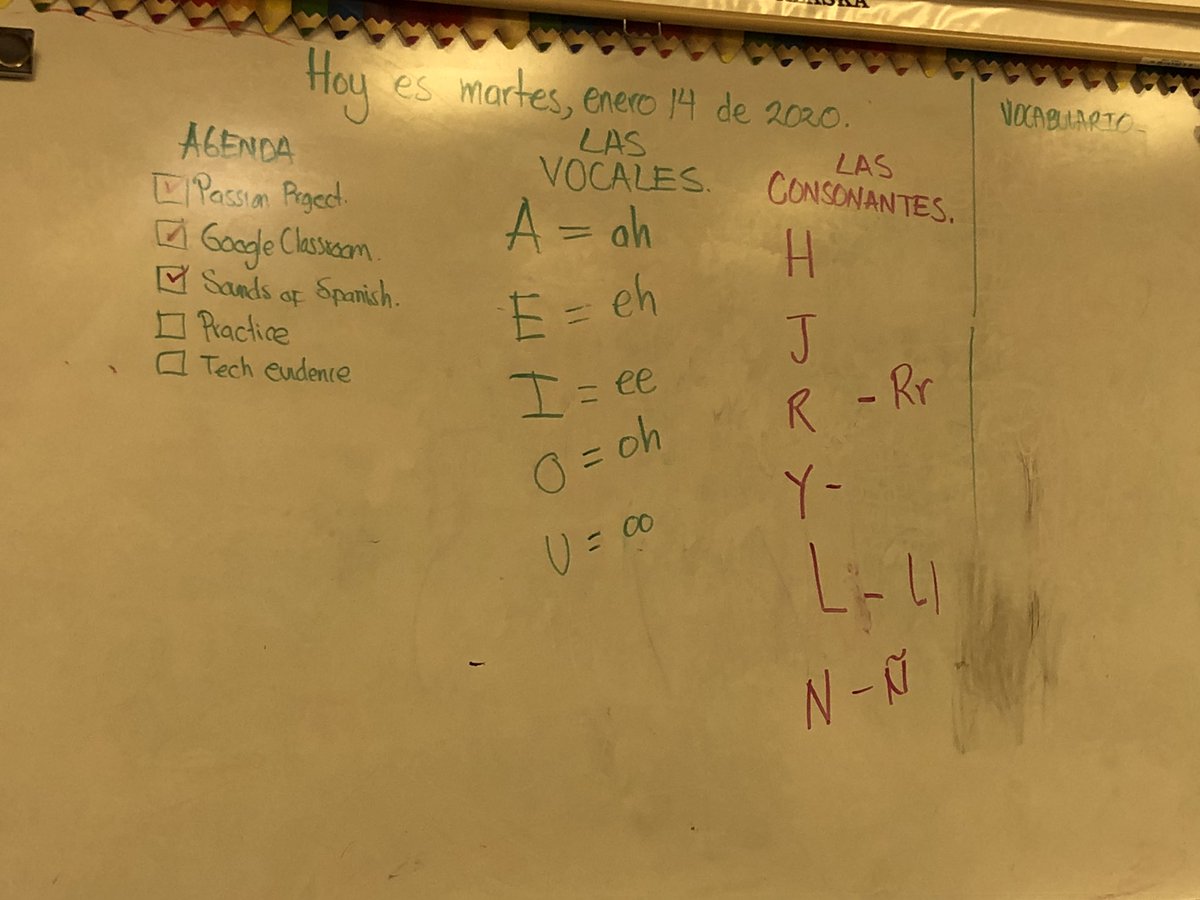 Hoy es martes, enero 14 de 2020.
AGENDA
Passion Project.
Google Classroom.
Sounds of Spanish.
Practice
Tech evidence
LAS
VOCALES.
A = ah
E = eh
I = ee
O = oh
U = oo
LAS
CONSONANTES.
H
J
R - Rr
Y -
L - Ll
N - Ñ
VOCABULARIO